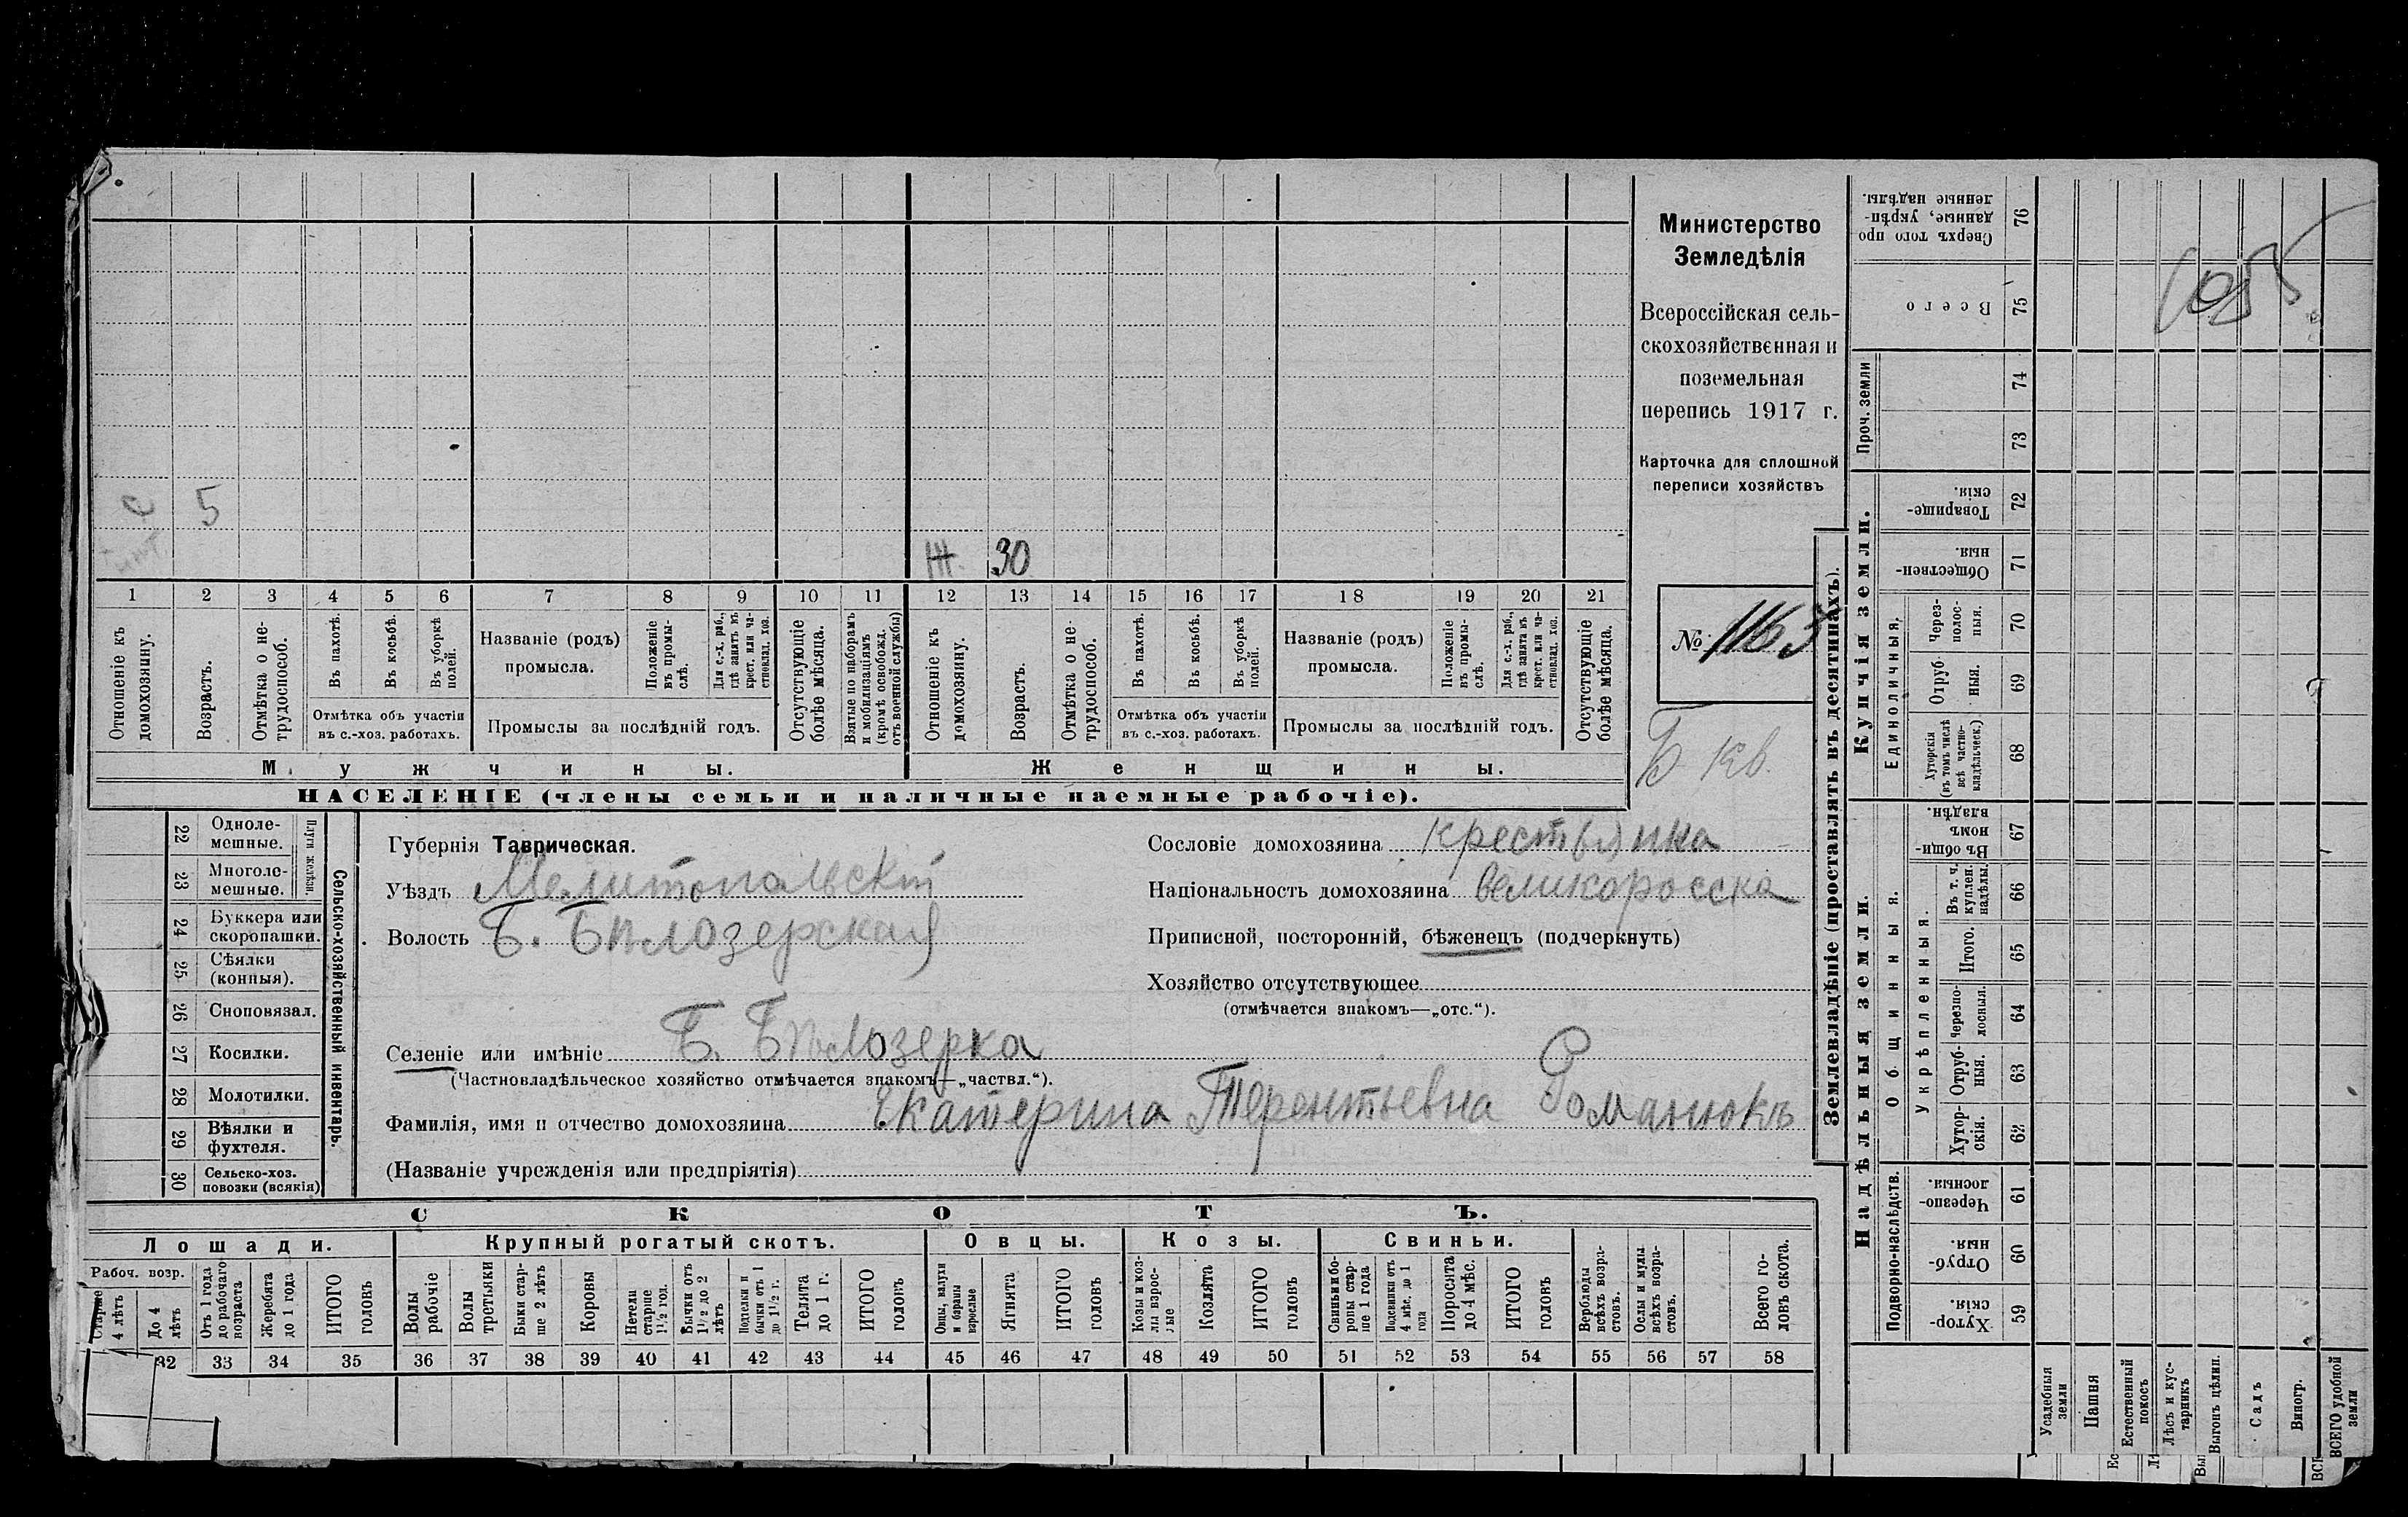 1055
Министерство
Земледѣлія
Всероссійская сель-
скохозяйственная и
поземельная
перепись 1917 г.
Карточка для сплошной
переписи хозяйствъ
№ 1163
Б кв.
с 5
Ж. 30
1 2 3 4 5 6 7 8 9 10 11 12 13 14 15 16 17 18 19 20 21
Отношеніе къ домохозяину.
Возрастъ.
Отмѣтка о не-трудоспособ.
Въ пахотѣ.
Въ косьбѣ.
Въ уборкѣ полей.
Отмѣтка объ участіи въ с.-хоз. работахъ.
Названіе (родъ) промысла.
Положеніе въ промы-слѣ.
Для с.-х. раб., гдѣ занятъ въ крест. или ча-стновлад. хоз.
Промыслы за послѣдній годъ.
Отсутствующіе болѣе мѣсяца.
Взятые по наборамъ и мобилизаціямъ (кромѣ освобожд. отъ военной службы)
Отношеніе къ домохозяину.
Возрастъ.
Отмѣтка о не-трудоспособ.
Въ пахотѣ.
Въ косьбѣ.
Въ уборкѣ полей.
Отмѣтка объ участіи въ с.-хоз. работахъ.
Названіе (родъ) промысла.
Положеніе въ промы-слѣ.
Для с.-х. раб., гдѣ занята въ крест. или ча-стновлад. хоз.
Промыслы за послѣдній годъ.
Отсутствующіе болѣе мѣсяца.
Мужчины.
Женщины.
НАСЕЛЕНІЕ (члены семьи и наличные наемные рабочіе).
22 Одноле-мешные.
23 Многоле-мешные.
Плуги желѣзн.
24 Буккера или скоропашки.
25 Сѣялки (конныя).
26 Сноповязал.
27 Косилки.
28 Молотилки.
29 Вѣялки и фухтеля.
30 Сельско-хоз. повозки (всякія)
Сельско-хозяйственный инвентарь.
Губернія Таврическая.
Уѣздъ Мелитопальскій
Волость Б. Бѣлозерская
Селеніе или имѣніе Б. Бѣлозерка
(Частновладѣльческое хозяйство отмѣчается знакомъ—„частвл.“).
Фамилія, имя и отчество домохозяина Екатерина Терентьевна Романюкъ
(Названіе учрежденія или предпріятія)
Сословіе домохозяина крестьянка
Національность домохозяина великоросска
Приписной, посторонній, бѣженецъ (подчеркнуть)
Хозяйство отсутствующее
(отмѣчается знакомъ—„отс.“).
СКОТЪ.
Лошади. Крупный рогатый скотъ. Овцы. Козы. Свиньи.
Рабоч. возр.
Старше 4 лѣтъ
До 4 лѣтъ
Отъ 1 года до рабочаго возраста
Жеребята до 1 года
ИТОГО головъ
Волы рабочіе
Волы третьяки
Быки стар-ше 2 лѣтъ
Коровы
Нетели старше 1½ год.
Бычки отъ 1½ до 2 лѣтъ
Подтелки и бычки отъ 1 до 1½ г.
Телята до 1 г.
ИТОГО головъ
Овцы, валухи и бараны взрослые
Ягнята
ИТОГО головъ
Козы и коз-лы взрос-лые
Козлята
ИТОГО головъ
Свиньи и бо-ровы стар-ше 1 года
Подсвинки отъ 4 мѣс. до 1 года
Поросята до 4 мѣс.
ИТОГО головъ
Верблюды всѣхъ возра-стовъ.
Ослы и мулы всѣхъ возра-стовъ.
Всего го-ловъ скота.
32 33 34 35 36 37 38 39 40 41 42 43 44 45 46 47 48 49 50 51 52 53 54 55 56 57 58
Землевладѣніе (проставлять въ десятинахъ).
Надѣльныя земли.
Купчія земли.
Проч. земли
Подворно-наслѣдств.
Общинныя.
Укрѣпленныя.
Единоличныя.
59 Хутор-скія.
60 Отруб-ныя.
61 Черезпо-лосныя.
62 Хутор-скія.
63 Отруб-ныя.
64 Черезпо-лосныя.
65 Итого.
66 Въ т. ч. куплен. надѣлы.
67 Въ общи-номъ владѣн.
68 Хуторскія (въ томъ числѣ всѣ частно-владѣльческ.)
69 Отруб-ныя.
70 Через-полос-ныя.
71 Обществен-ныя.
72 Товарище-скія.
73
74
75 Всего
76 Сверхъ того про данные, укрѣп-ленные надѣлы.
Усадебныя земли
Пашня
Естественный покосъ
Лѣсъ и кус-тарникъ
Выгонъ цѣлин.
Садъ
Виногр.
ВСЕГО удобной земли